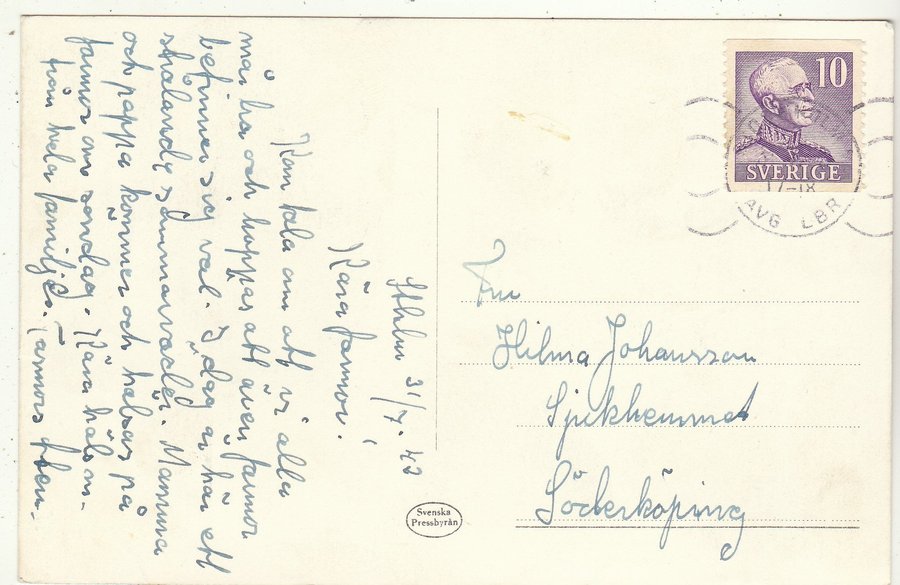 Sthlm 31/7. 42
Kära farmor!
Kan tala om att vi alla
må bra och hoppas att även farmor
befinner sig väl. I dag är här ett
strålande sommarväder. Mamma
och pappa kommer och hälsar på
farmor om söndag. Kära häls n.
från hela familjen. Farmors
10
SVERIGE
17-18
AVG LBR
Fru
Hilma Johansson
Sjukhemmet
Söderköping
Svenska
Pressbyrån